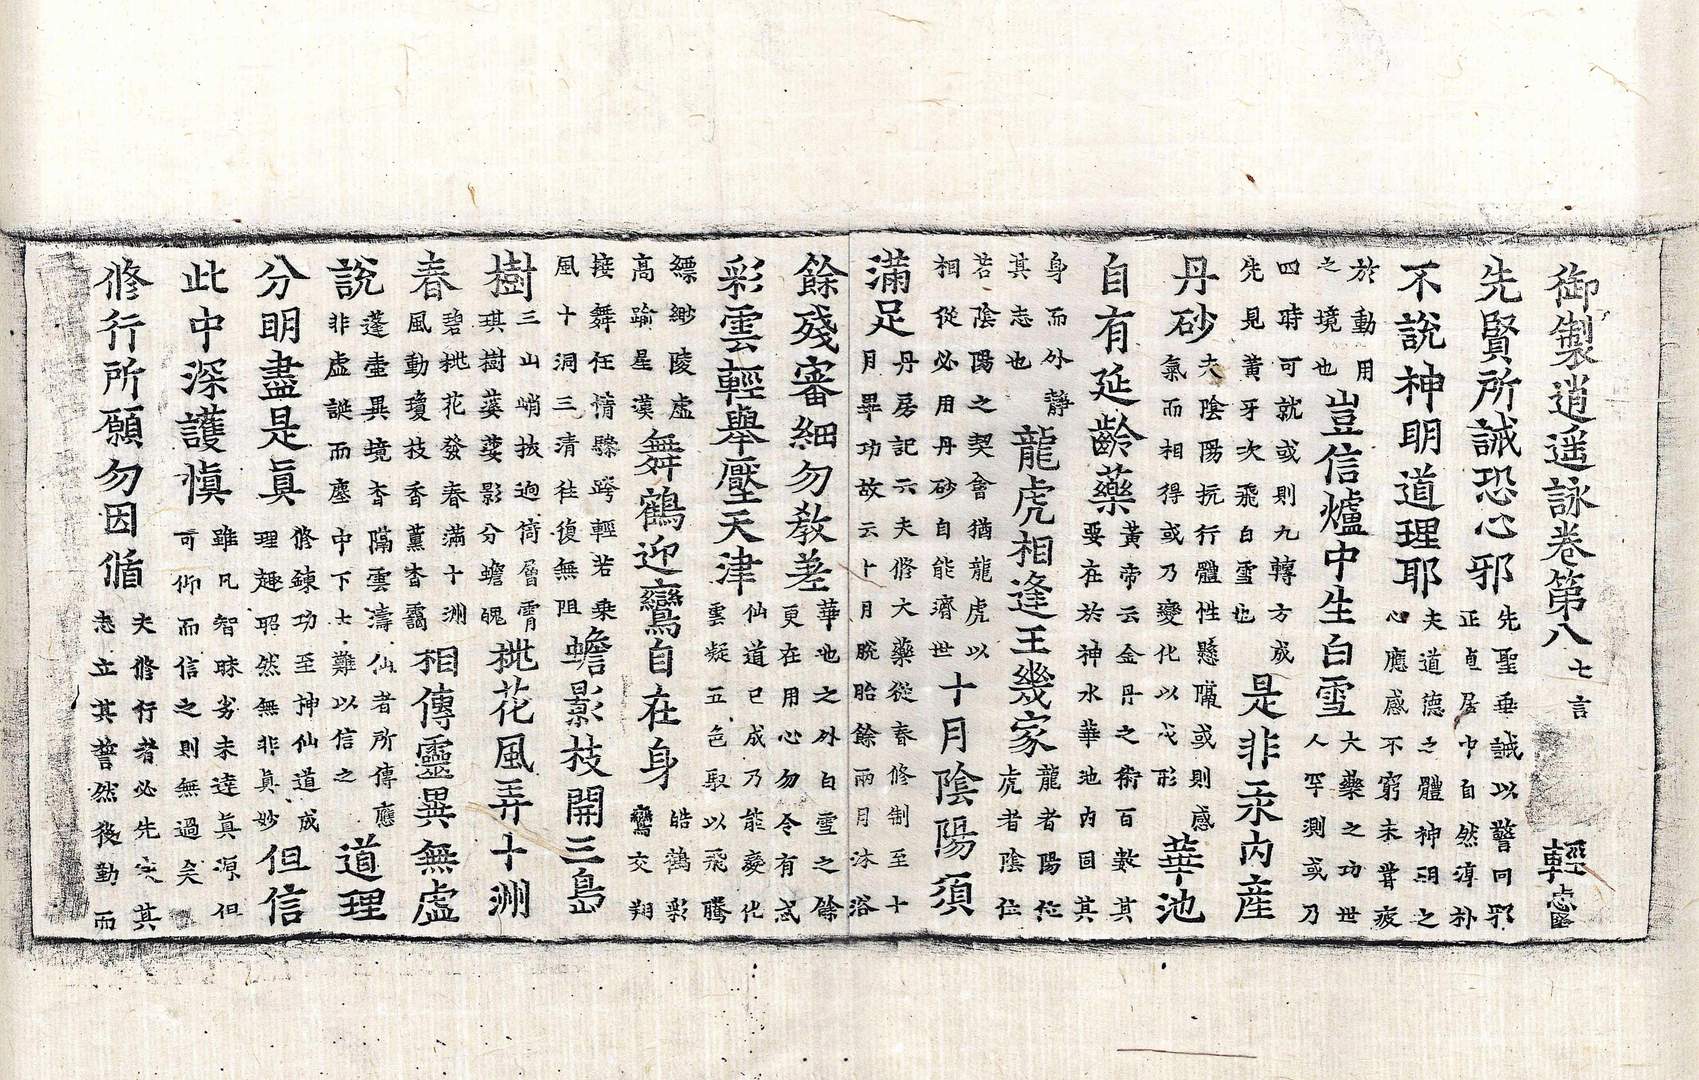 御製逍遥詠卷第八 七言 輕
先賢所誡恐心邪 先聖垂誡以警回邪 正直居中自然淳朴
不說神明道理耶 夫道德之體神明之 心應感不窮未嘗疲
於動用 之境也 豈信爐中生白雪 大藥之功世 人罕測或乃
四時可就或則九轉方成 先見黃牙次飛白雪也 是非汞内産
丹砂 夫陰陽抗行體性懸隔或則感 氣而相得或乃變化以成形 華池
自有延齡藥 黃帝云金丹之術百數其 要在於神水華池内固其
身而外靜 其志也 龍虎相逢王幾家 龍者陽位 虎者陰位
若陰陽之契會猶龍虎以 相從必用丹砂自能濟世 十月陰陽須
滿足 丹房記云夫修大藥從春修制至十 月畢功故云十月脫胎餘兩月沐浴
餘殘審細勿教差 華池之外白雪之餘 更在用心勿令有忒
彩雲輕舉壓天津 仙道已成乃能變化 雲凝五色取以飛騰
縹緲陵虛 高踰星漢 舞鶴迎鸞自在身 皓鶴彩 鸞交翔
接舞任情驂跨輕若乘 風十洞三清往復無阻 蟾影枝開三島
樹 三山峭拔逈倚層霄 琪樹蔆蔆影分蟾魄 桃花風弄十洲
春 碧桃花發春滿十洲 風動瓊枝香薰杳靄 相傳靈異無虛
說 蓬壺異境杳隔雲濤仙者所傳應 非虛誕而塵中下士難以信之 道理
分明盡是真 修鍊功至神仙道成 理趣昭然無非真妙 但信
此中深護慎 雖凡智昧劣未達真源但 可仰而信之則無過矣
修行所願勿因循 夫修行者必先定其 志立其誓然後勤而